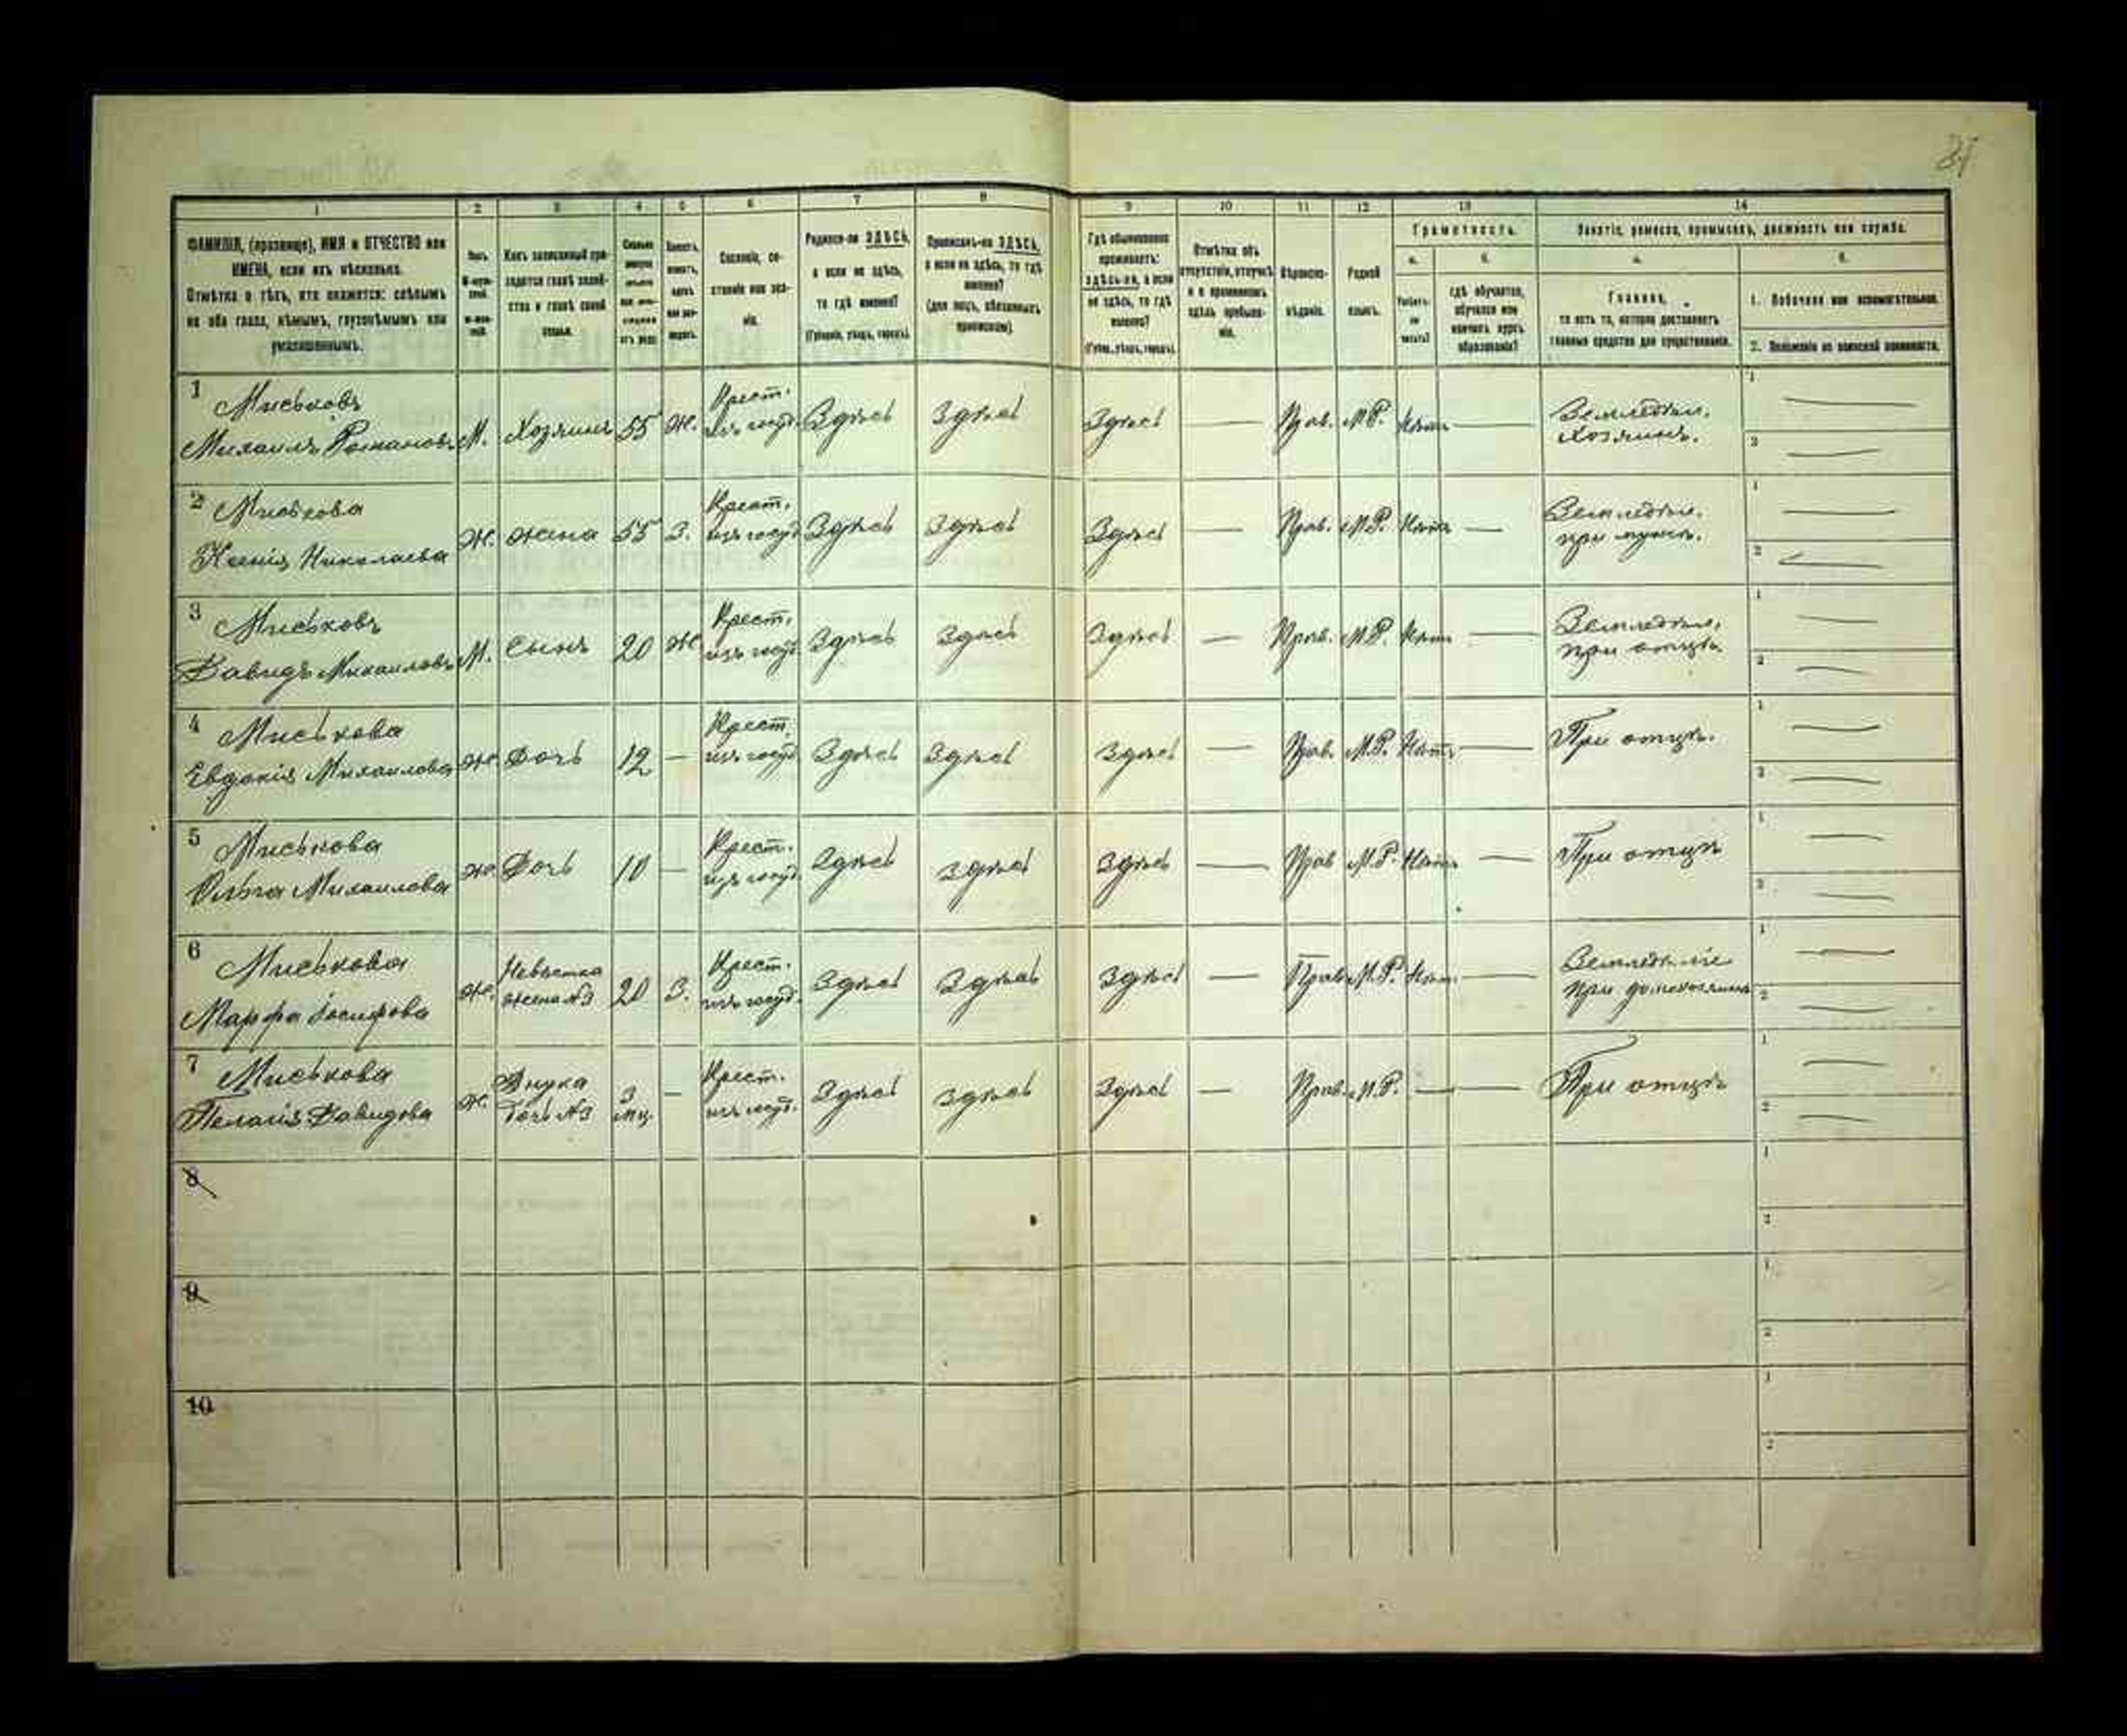 1 2 3 4 5 6 7 8 9 10 11 12 13 14
ФАМИЛІЯ, (прозвище), ИМЯ и ОТЧЕСТВО или
ИМЕНА, если ихъ нѣсколько.
Отмѣтка о тѣхъ, кто окажется: слѣпымъ
на оба глаза, нѣмымъ, глухонѣмымъ или
умалишеннымъ.
Полъ.
Какъ записанный при-
ходится главѣ хозяй-
ства и главѣ своей
семьи.
Сословіе, со-
стояніе или зва-
ніе.
Родился-ли ЗДѢСЬ,
а если не здѣсь,
то гдѣ именно?
(Губернія, уѣздъ, городъ).
Приписанъ-ли ЗДѢСЬ,
а если не здѣсь, то гдѣ
именно?
(для лицъ, обязанныхъ
припискою)
Гдѣ обыкновенно
проживаетъ:
здѣсь-ли, а если
не здѣсь, то гдѣ
именно?
(Губер., уѣздъ, городъ).
Отмѣтка объ
отсутствіи, отлучкѣ
и о временномъ
здѣсь пребыва-
ніи.
Вѣроиспо-
вѣданіе.
Родной
языкъ.
Грамотность.
а.
Умѣетъ-
ли
читать?
б.
гдѣ обучается,
обучался или
кончилъ курсъ
образованія?
Занятіе, ремесло, промыселъ, должность или служба.
а.
Главное,
то есть то, которое доставляетъ
главныя средства для существованія.
б.
1. Побочное или вспомогательное.
2. Положеніе по воинской повинности.
1 Миськовъ
Михаилъ Романовъ М. Хозяинъ 55 Ж. Крест. изъ госуд. Здѣсь Здѣсь Здѣсь — Прав. М.Р. Нѣтъ — Земледѣл. Хозяинъ. 1 — 2 —
2 Миськова
Ксенія Николаева Ж. Жена 55 З. Крест. изъ госуд. Здѣсь Здѣсь Здѣсь — Прав. М.Р. Нѣтъ — Земледѣл. при мужѣ. 1 — 2 —
3 Миськовъ
Давидъ Михаиловъ М. Сынъ 20 Ж. Крест. изъ госуд. Здѣсь Здѣсь Здѣсь — Прав. М.Р. Нѣтъ — Земледѣл. при отцѣ. 1 — 2 —
4 Миськова
Евдокія Михаилова Ж. Дочь 12 — Крест. изъ госуд. Здѣсь Здѣсь Здѣсь — Прав. М.Р. Нѣтъ — При отцѣ. 1 — 2 —
5 Миськова
Ольга Михаилова Ж. Дочь 10 — Крест. изъ госуд. Здѣсь Здѣсь Здѣсь — Прав М.Р. Нѣтъ — При отцѣ 1 — 2 —
6 Миськова
Марфа Іосифова Ж. Невѣстка жена №3 20 З. Крест. изъ госуд. Здѣсь Здѣсь Здѣсь — Прав. М.Р. Нѣтъ — Земледѣліе при домохозяинѣ 1 — 2 —
7 Миськова
Пелагія Давидова Ж. Внука дочь №3 3 мц. — Крест. изъ госуд. Здѣсь Здѣсь Здѣсь — Прав. М.Р. — — При отцѣ 1 — 2 —
8 1 2
9 1 2
10 1 2